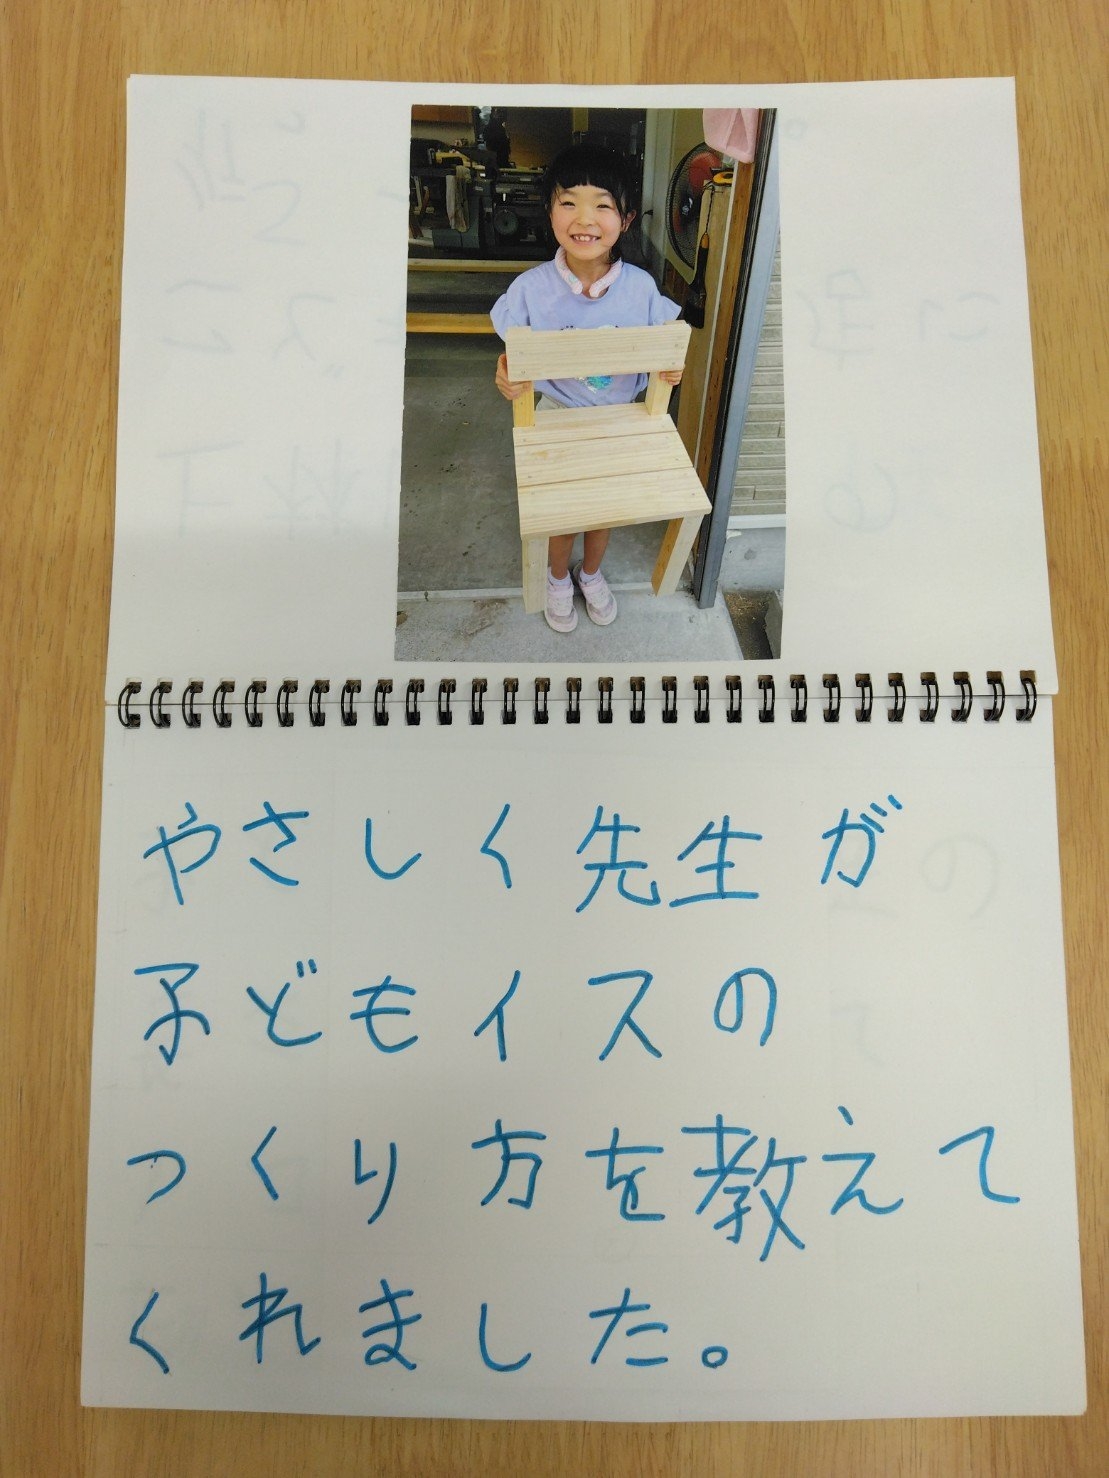 やさしく先生が
子どもイスの
つくり方を教えて
くれました。